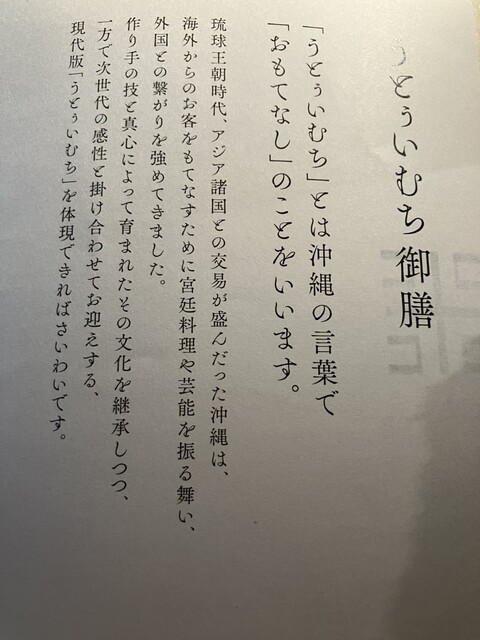 うとぅいむち御膳
「うとぅいむち」とは沖縄の言葉で
「おもてなし」のことをいいます。
琉球王朝時代、アジア諸国との交易が盛んだった沖縄は、
海外からのお客をもてなすために宮廷料理や芸能を振る舞い、
外国との繋がりを強めてきました。
作り手の技と真心によって育まれたその文化を継承しつつ、
一方で次世代の感性と掛け合わせてお迎えする、
現代版「うとぅいむち」を体現できればさいわいです。